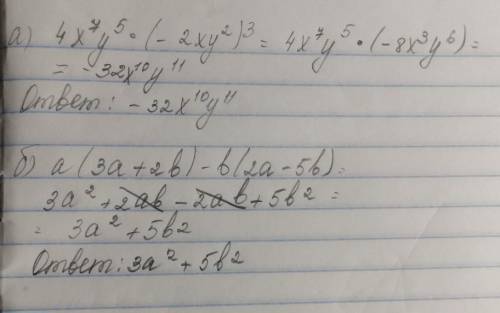 а) 4x⁷y⁵·(-2xy²)³ = 4x⁷y⁵·(-8x³y⁶) =
= -32x¹⁰y¹¹
Ответ: -32x¹⁰y¹¹
б) a(3a+2b)-b(2a-5b)=
3a²+2ab-2ab+5b2 =
= 3a²+5b2
Ответ: 3a²+5b2